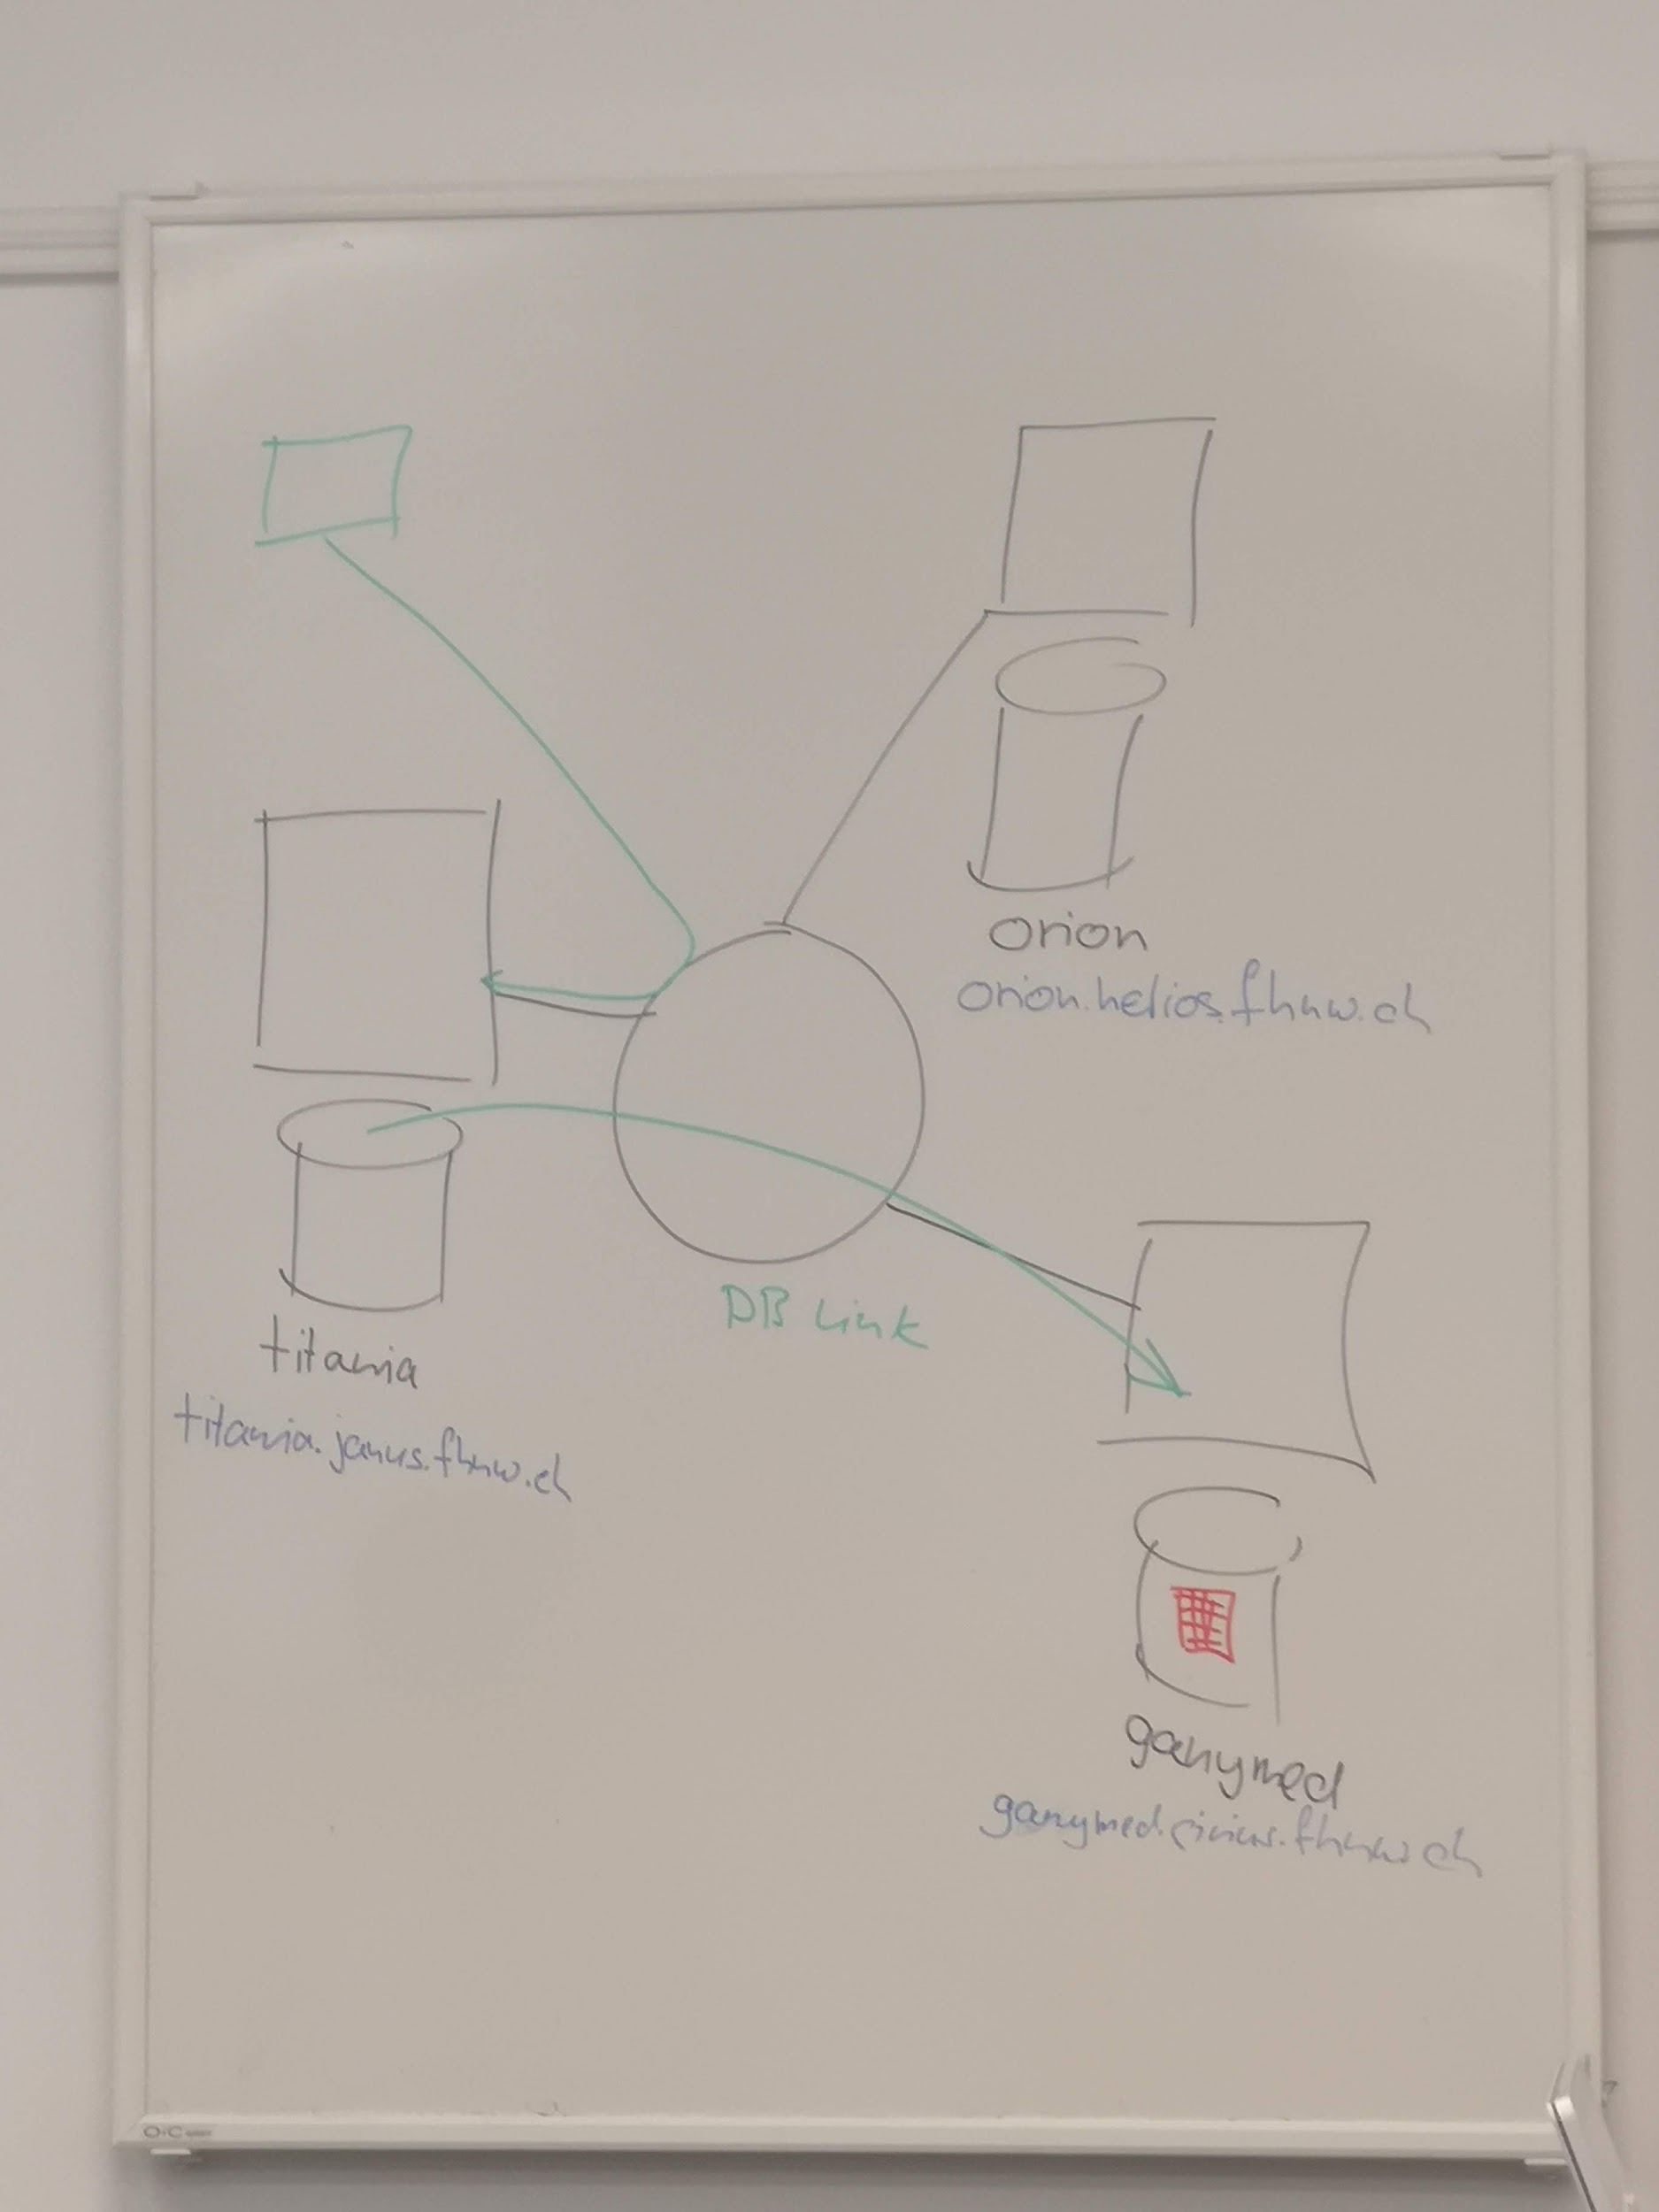 orion
orion.helios.fhnw.ch
DB Link
titania
titania.janus.fhnw.ch
ganymed
ganymed.sirius.fhnw.ch